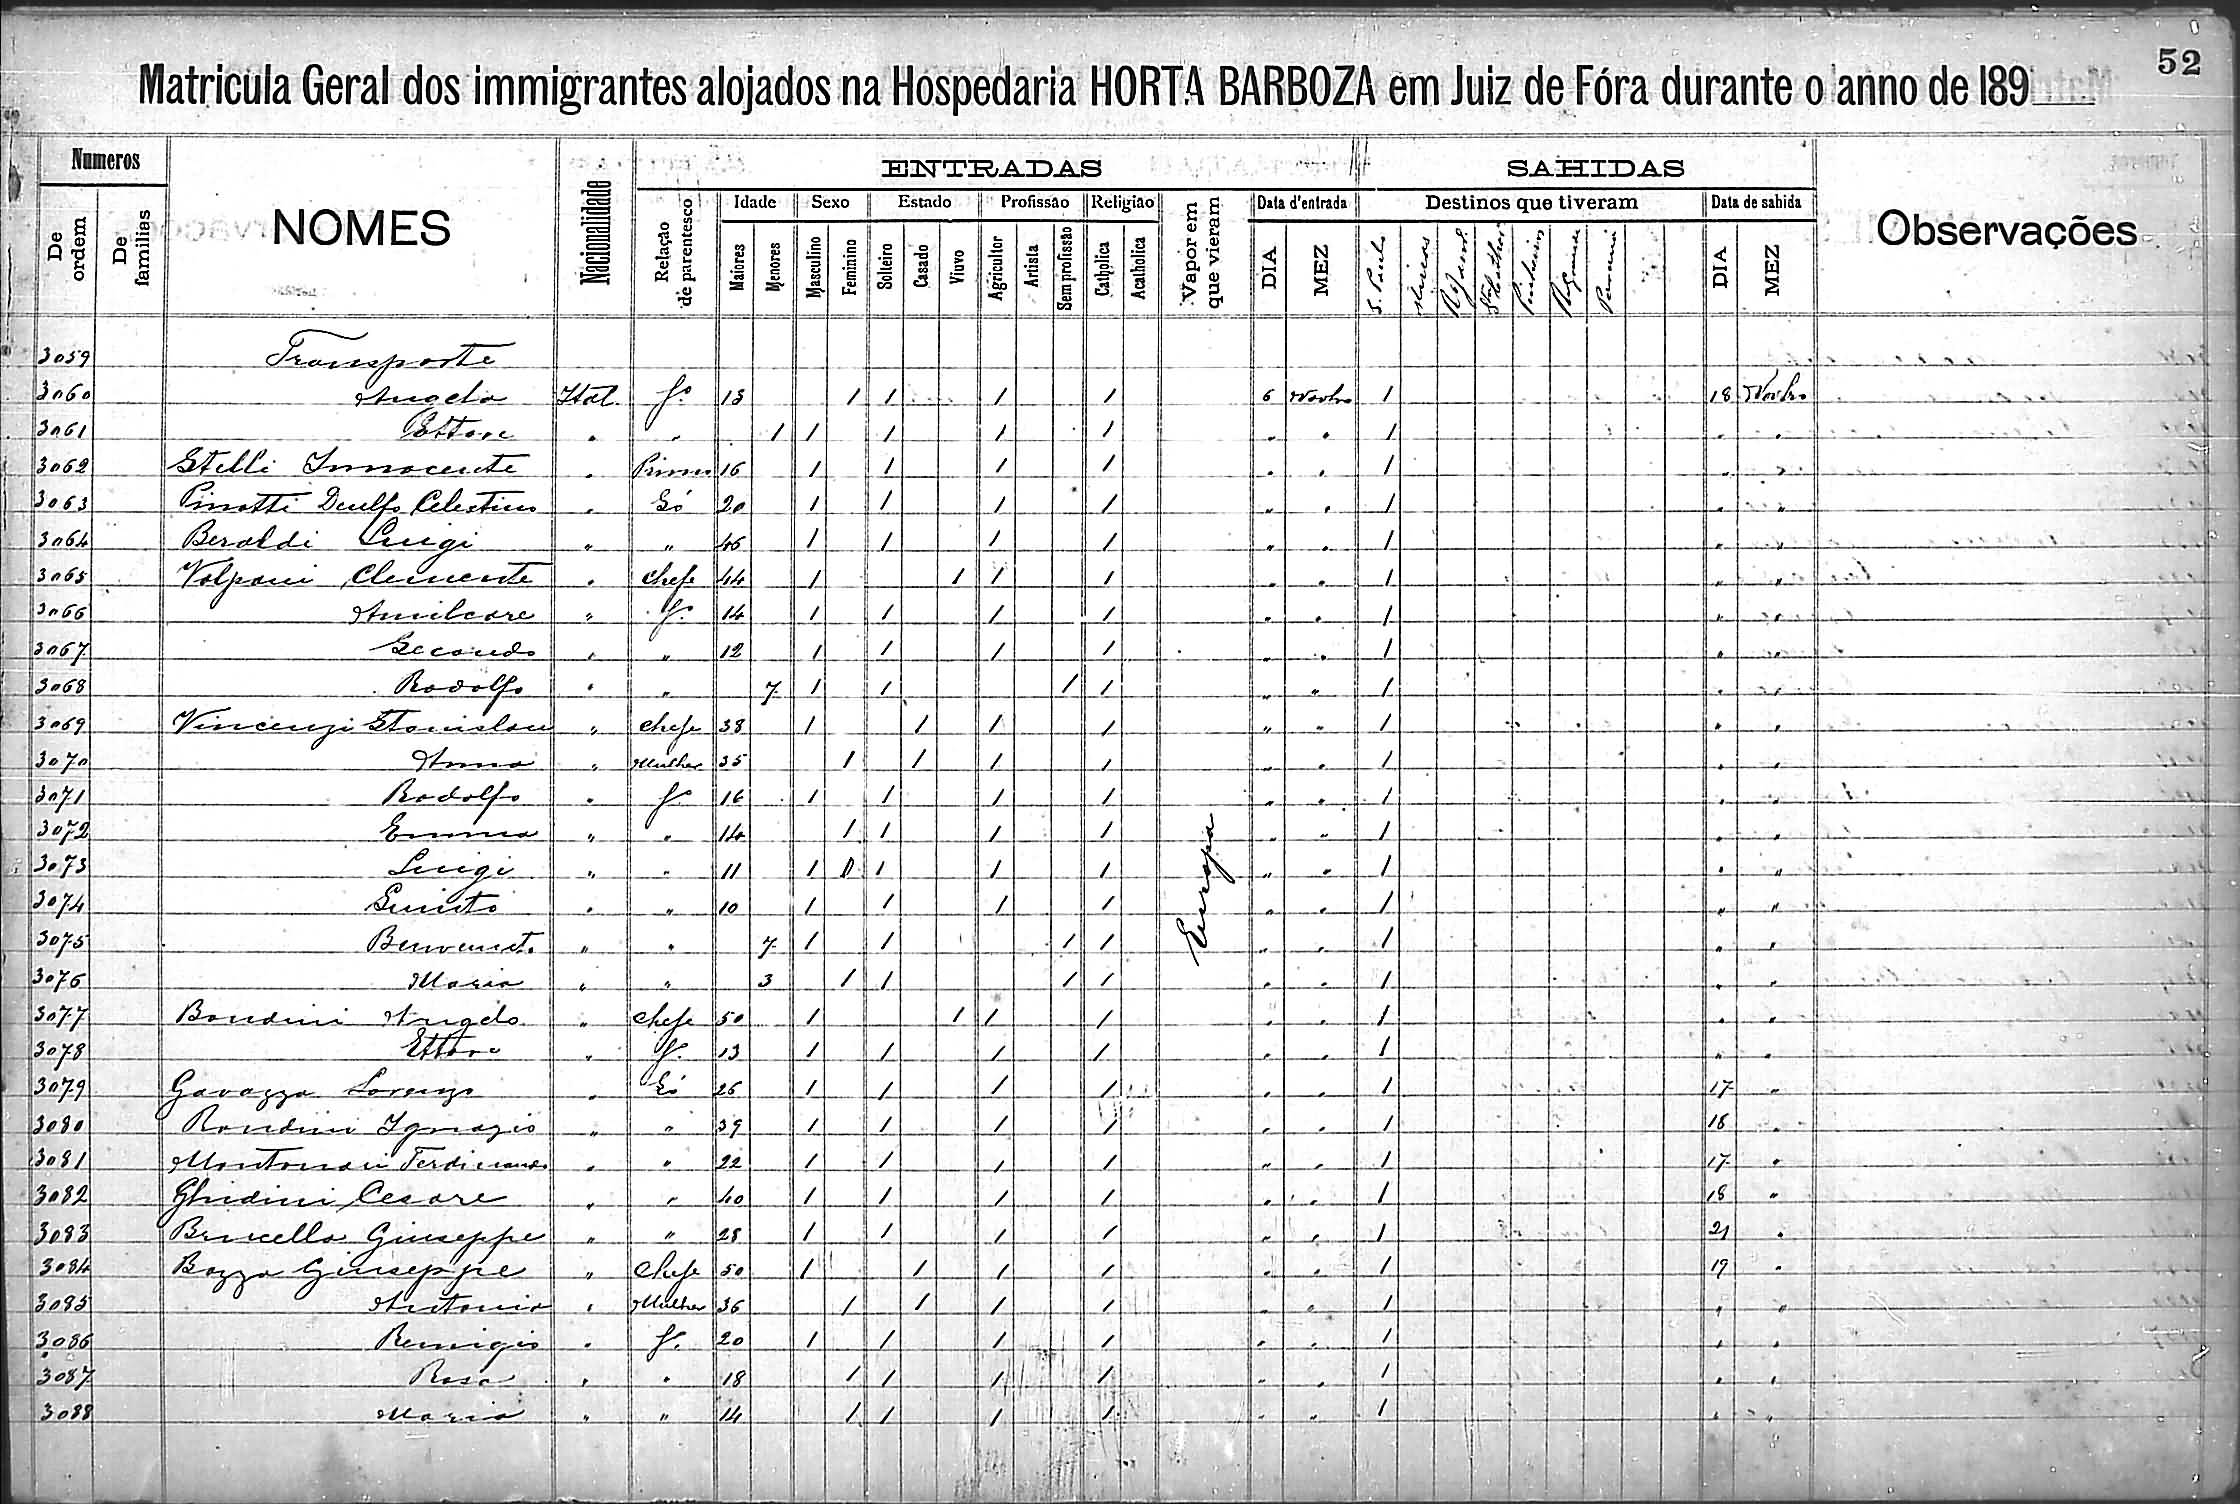 52
Matricula Geral dos immigrantes alojados na Hospedaria HORTA BARBOZA em Juiz de Fóra durante o anno de 189
Numeros NOMES Nacionalidade ENTRADAS SAHIDAS Observações
De ordem De familias Relação de parentesco Idade Sexo Estado Profissão Religião Vapor em que vieram Data d'entrada Destinos que tiveram Data de sahida
Maiores Menores Masculino Feminino Solteiro Casado Viuvo Agricultor Artista Sem profissão Catholica Acatholica DIA MEZ S. Paulo Minas DIA MEZ
3059 Transporte
3060 Angela Ital. fº 13 1 1 1 1 6 Novbro 1 18 Novbro
3061 Ettore " " 1 1 1 1 1 " " 1 " "
3062 Stelli Innocente " Primo 16 1 1 1 1 " " 1 " "
3063 Pinotti Celestino " Só 20 1 1 1 1 " " 1 " "
3064 Beraldi Luigi " " 46 1 1 1 1 " " 1 " "
3065 Volpani Clemente " Chefe 44 1 1 1 1 " " 1 " "
3066 Amilcare " fº 14 1 1 1 1 " " 1 " "
3067 Secondo " " 12 1 1 1 1 " " 1 " "
3068 Rodolfo " " 7 1 1 1 1 " " 1 " "
3069 Vincenzi Stanislau " Chefe 38 1 1 1 1 " " 1 " "
3070 Anna " Mulher 35 1 1 1 1 " " 1 " "
3071 Rodolfo " fº 16 1 1 1 1 " " 1 " "
3072 Emma " " 14 1 1 1 1 " " 1 " "
3073 Luigi " " 11 1 1 1 1 " " 1 " "
3074 Quinto " " 10 1 1 1 1 Europa " " 1 " "
3075 Benvenuto " " 7 1 1 1 1 " " 1 " "
3076 Maria " " 3 1 1 1 1 " " 1 " "
3077 Bondini Angelo " Chefe 50 1 1 1 1 " " 1 " "
3078 Ettore " fº 13 1 1 1 1 " " 1 " "
3079 Gavazza Lorenzo " Só 26 1 1 1 1 " " 1 17 "
3080 Rondini Ignazio " " 39 1 1 1 1 " " 1 18 "
3081 Montonari Ferdinando " " 22 1 1 1 1 " " 1 17 "
3082 Ghidini Cesare " " 40 1 1 1 1 " " 1 18 "
3083 Brucella Giuseppe " " 28 1 1 1 1 " " 1 21 "
3084 Bozza Giuseppe " Chefe 50 1 1 1 1 " " 1 19 "
3085 Antonia " Mulher 36 1 1 1 1 " " 1 " "
3086 Remigio " fº 20 1 1 1 1 " " 1 " "
3087 Rosa " " 18 1 1 1 1 " " 1 " "
3088 Maria " " 14 1 1 1 1 " " 1 " "